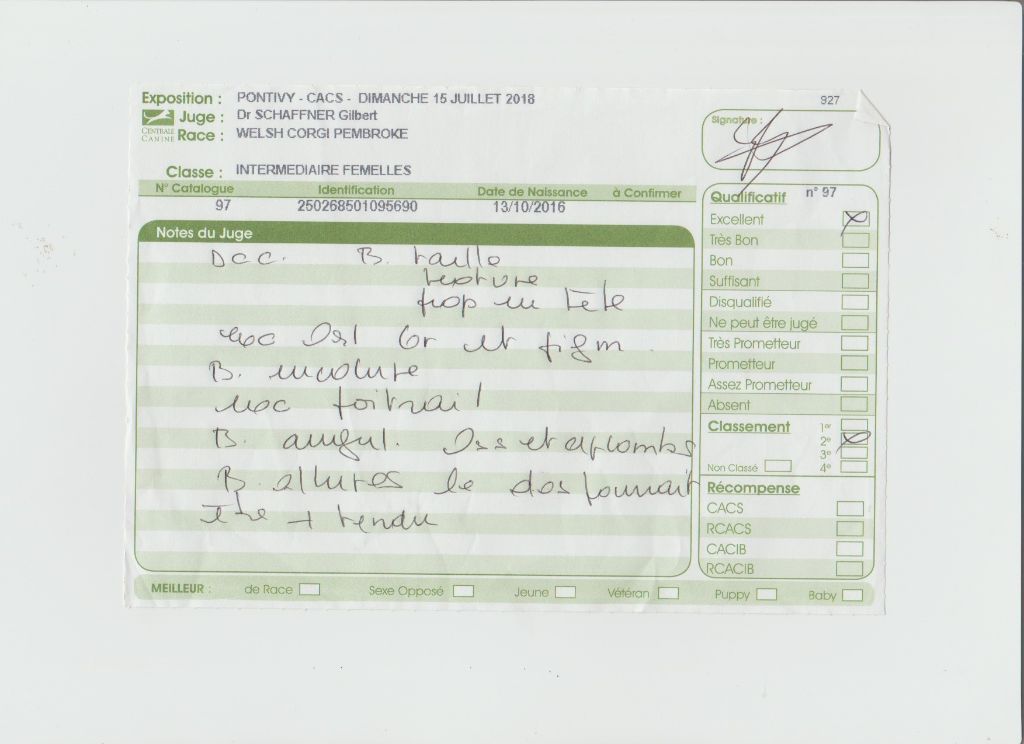 Exposition : PONTIVY - CACS - DIMANCHE 15 JUILLET 2018
927
CENTRALE CANINE
Juge : Dr SCHAFFNER Gilbert
Race : WELSH CORGI PEMBROKE
Classe : INTERMEDIAIRE FEMELLES
Signature :
N° Catalogue Identification Date de Naissance à Confirmer
97 250268501095690 13/10/2016
Notes du Juge
Dcc. B. taille
texture
prop en tête
exc Or et pigm.
B. encolure
exc poitrail
B. angul. Oss et aplombs
B. allures le dos pourrait
être + tendu
Qualificatif n° 97
Excellent
Très Bon
Bon
Suffisant
Disqualifié
Ne peut être jugé
Très Prometteur
Prometteur
Assez Prometteur
Absent
Classement 1er
2e
3e
Non Classé 4e
Récompense
CACS
RCACS
CACIB
RCACIB
MEILLEUR : de Race Sexe Opposé Jeune Vétéran Puppy Baby